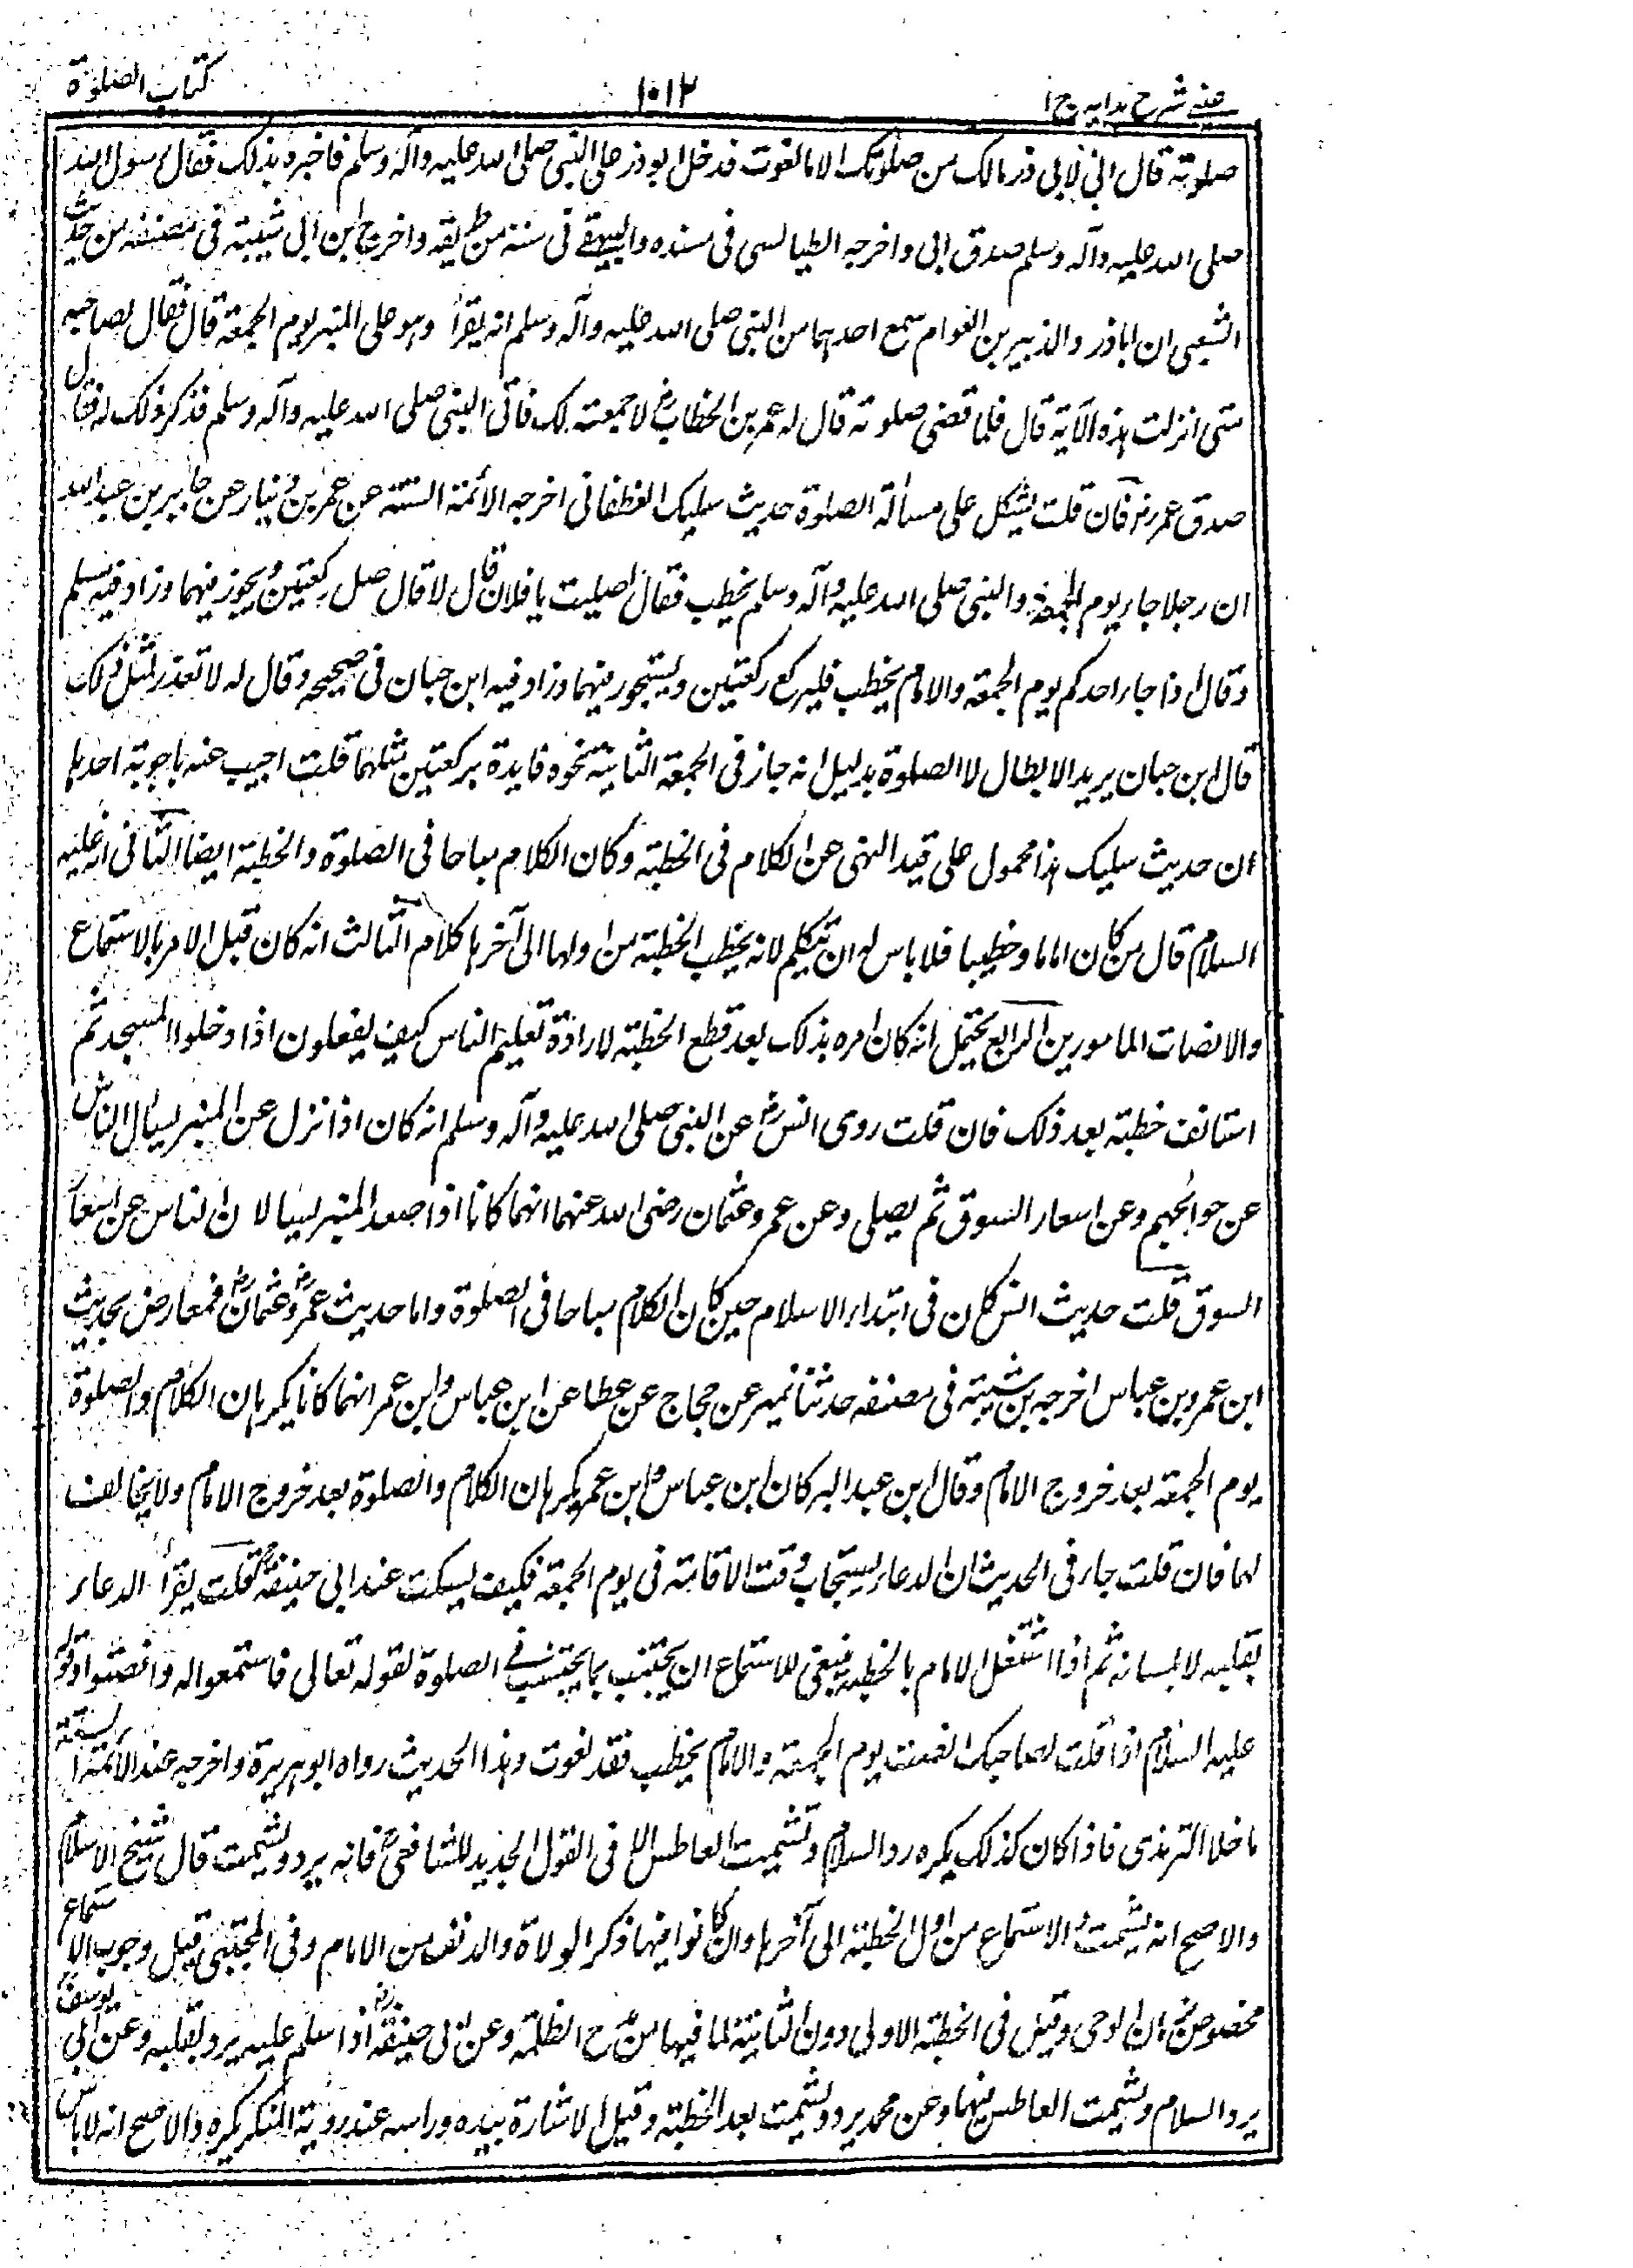 عینے شرح ہدایہ ج ۱
۱۰۱۲
کتاب الصلوٰة
صلوته قال ابی لابی ذر مالك من صلوتك الا مالغوت فدخل ابو ذر علی النبی صلی الله علیه وآله وسلم فاخبره بذلك فقال رسول الله
صلی الله علیه وآله وسلم صدق ابی واخرجه الطیالسی فی مسنده والبیهقے فی سننه من طریقه واخرج ابن ابی شیبة فی مصنفه من حدیث
الشعبی ان اباذر والزبیر بن العوام سمع احدہما من النبی صلی الله علیه وآله وسلم انه یقرأ وہو علی المنبر یوم الجمعة قال فقال لصاحبه
متی انزلت ہذه الآیة قال فلما قضی صلوته قال له عمر بن الخطاب رض لا جمعة لك فاتی النبی صلی الله علیه وآله وسلم فذکر ذلك له فقال
صدق عمر رض فان قلت یشکل علی مسألة الصلوة حدیث سلیك الغطفانی اخرجه الائمة الستة عن عمر بن دینار عن جابر بن عبد الله
ان رجلا جاء یوم الجمعة والنبی صلی الله علیه وآله وسلم یخطب فقال اصلیت یا فلان قال لا قال صل رکعتین ویجوز فیهما وزاد فیه مسلم
وقال اذا جاء احدکم یوم الجمعة والامام یخطب فلیرکع رکعتین ولیتجوز فیهما وزاد فیه ابن حبان فی صحیحه وقال له لا تعد لمثل ذلك
قال ابن حبان یرید الابطال لا الصلوة بدلیل انه جاز فی الجمعة الثانیة نحوه فایدة برکعتین مثلهما قلت اجیب عنه باجوبة احدہا
ان حدیث سلیك ہذا محمول علی قید النهی عن الکلام فی الخطبة وکان الکلام مباحا فی الصلوة والخطبة ایضا الثانی انه علیه
السلام قال من کان اماما وخطیبا فلا باس له ان یتکلم لانه یخطب الخطبة من اولها الی آخرہا کلام الثالث انه کان قبل الامر بالاستماع
والانصات المامورین الرابع یحتمل انه کان امره بذلك بعد قطع الخطبة لارادة تعلیم الناس کیف یفعلون اذا دخلوا المسجد ثم
استانف خطبة بعد ذلك فان قلت روی انس رض عن النبی صلی الله علیه وآله وسلم انه کان اذا نزل عن المنبر یسال الناس
عن حوایجهم وعن اسعار السوق ثم یصلی وعن عمر وعثمان رضی الله عنهما انهما کانا اذا صعد المنبر یسالان الناس عن اسعار
السوق قلت حدیث انس کان فی ابتداء الاسلام حین کان الکلام مباحا فی الصلوة واما حدیث عمر رض وعثمان رض فمعارض بحدیث
ابن عمر وبن عباس اخرجه بن شیبة فی مصنفه حدثنا نمیر عن حجاج عن عطا عن ابن عباس وابن عمر انهما کانا یکرہان الکلام والصلوة
یوم الجمعة بعد خروج الامام وقال ابن عبد البر کان ابن عباس وابن عمر یکرہان الکلام والصلوة بعد خروج الامام ولا یخالف
لهما فان قلت جاء فی الحدیث ان الدعاء یستجاب وقت الاقامة فی یوم الجمعة فکیف یسکت عند ابی حنیفة رح قلت یقرأ الدعاء
بقلبه لا بلسانه ثم اذا اشتغل الامام بالخطبة ینبغی للاستماع ان یجتنب بما یجتنب فے الصلوة لقوله تعالی فاستمعوا له وانصتوا وقوله
علیه السلام اذا قلت لصاحبك انصت یوم الجمعة والامام یخطب فقد لغوت وہذا الحدیث رواه ابو ہریرة واخرجه عند الائمة الستة
ما خلا الترمذی فاذا کان کذلك یکره رد السلام وتشمیت العاطس الا فی القول الجدید للشافعی رح فانه یرد ویشمت قال شیخ الاسلام
والاصح انه یشمت والاستماع من اول الخطبة الی آخرہا وان کانوا فیها ذکر الولاة والدنف من الامام وفی المجتبی قیل وجوب الاستماع
مخصوص بزمان الوحی وقیل فی الخطبة الاولی دون الثانیة لما فیها من مدح الظلمة وعن ابی حنیفة رح اذا سلم علیه یرد بقلبه وعن ابی یوسف رح
یرد السلام ویشمت العاطس فیهما وعن محمد یرد ویشمت بعد الخطبة وقیل الاشارة بیده وراسه عند رویة المنکر یکره والاصح انه لا باس